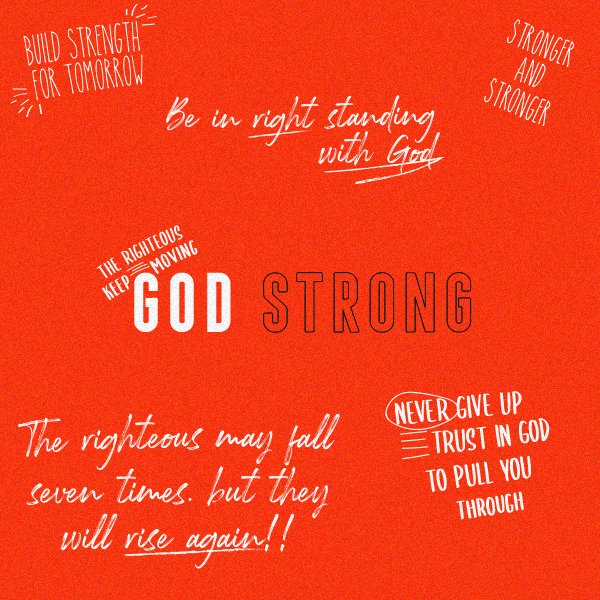 BUILD STRENGTH
FOR TOMORROW
STRONGER
AND
STRONGER
Be in right standing
with God
THE RIGHTEOUS
KEEP MOVING
GOD STRONG
The righteous may fall
seven times. but they
will rise again!!
NEVER GIVE UP
TRUST IN GOD
TO PULL YOU
THROUGH